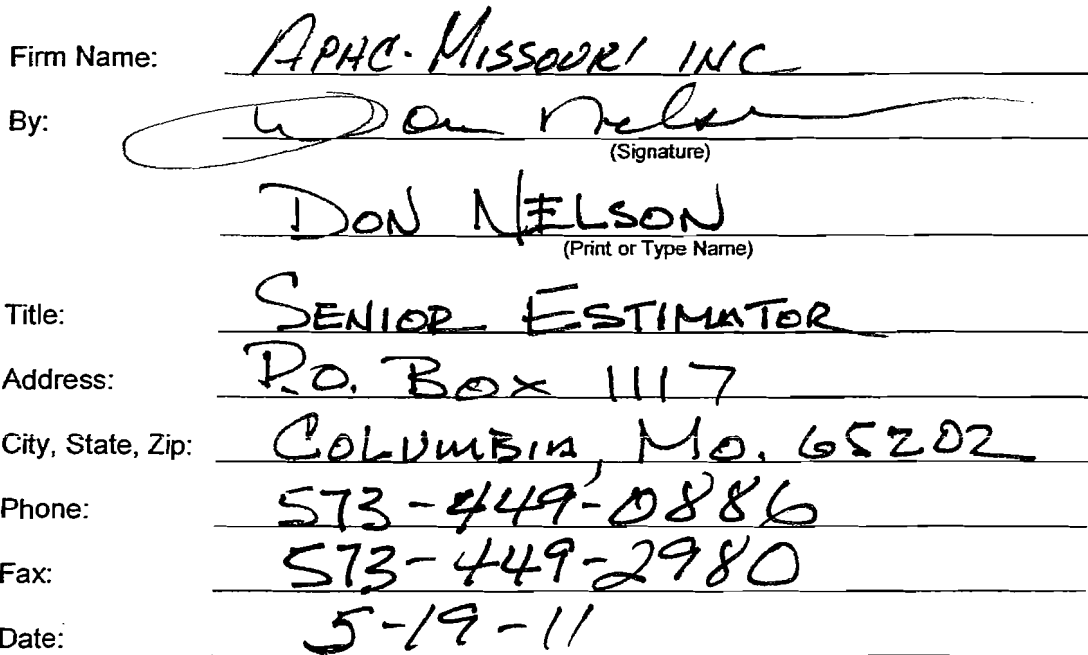 Firm Name: APAC-MISSOURI INC
By: Don Nelson
(Signature)
DON NELSON
(Print or Type Name)
Title: SENIOR ESTIMATOR
Address: P.O. BOX 1117
City, State, Zip: COLUMBIA, MO. 65202
Phone: 573-449-0886
Fax: 573-449-2980
Date: 5-19-11